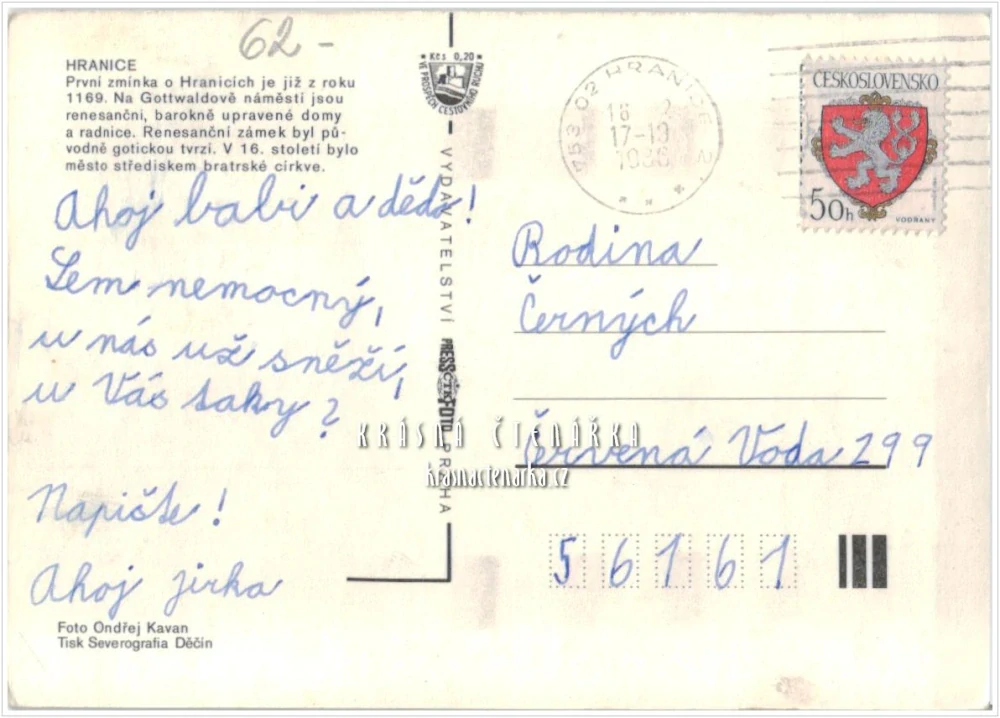 62-
HRANICE
První zmínka o Hranicích je již z roku
1169. Na Gottwaldově náměstí jsou
renesanční, barokně upravené domy
a radnice. Renesanční zámek byl pů-
vodně gotickou tvrzí. V 16. století bylo
město střediskem bratrské církve.
Ahoj babi a dědo!
Sem nemocný,
u nás už sněží,
u Vás taky?
Napište!
Ahoj jirka
Foto Ondřej Kavan
Tisk Severografia Děčín
Kčs 0,20
VE PROSPĚCH CESTOVNÍHO RUCHU
VYDAVATELSTVÍ PRESSFOTO PRAHA
ČTK
753 02 HRANICE 2
17-19
1986
ČESKOSLOVENSKO
50h
VODŇANY
Rodina
Černých
Červená Voda 299
56161
KRÁSNÁ ČTENÁŘKA
krasnactenarka.cz